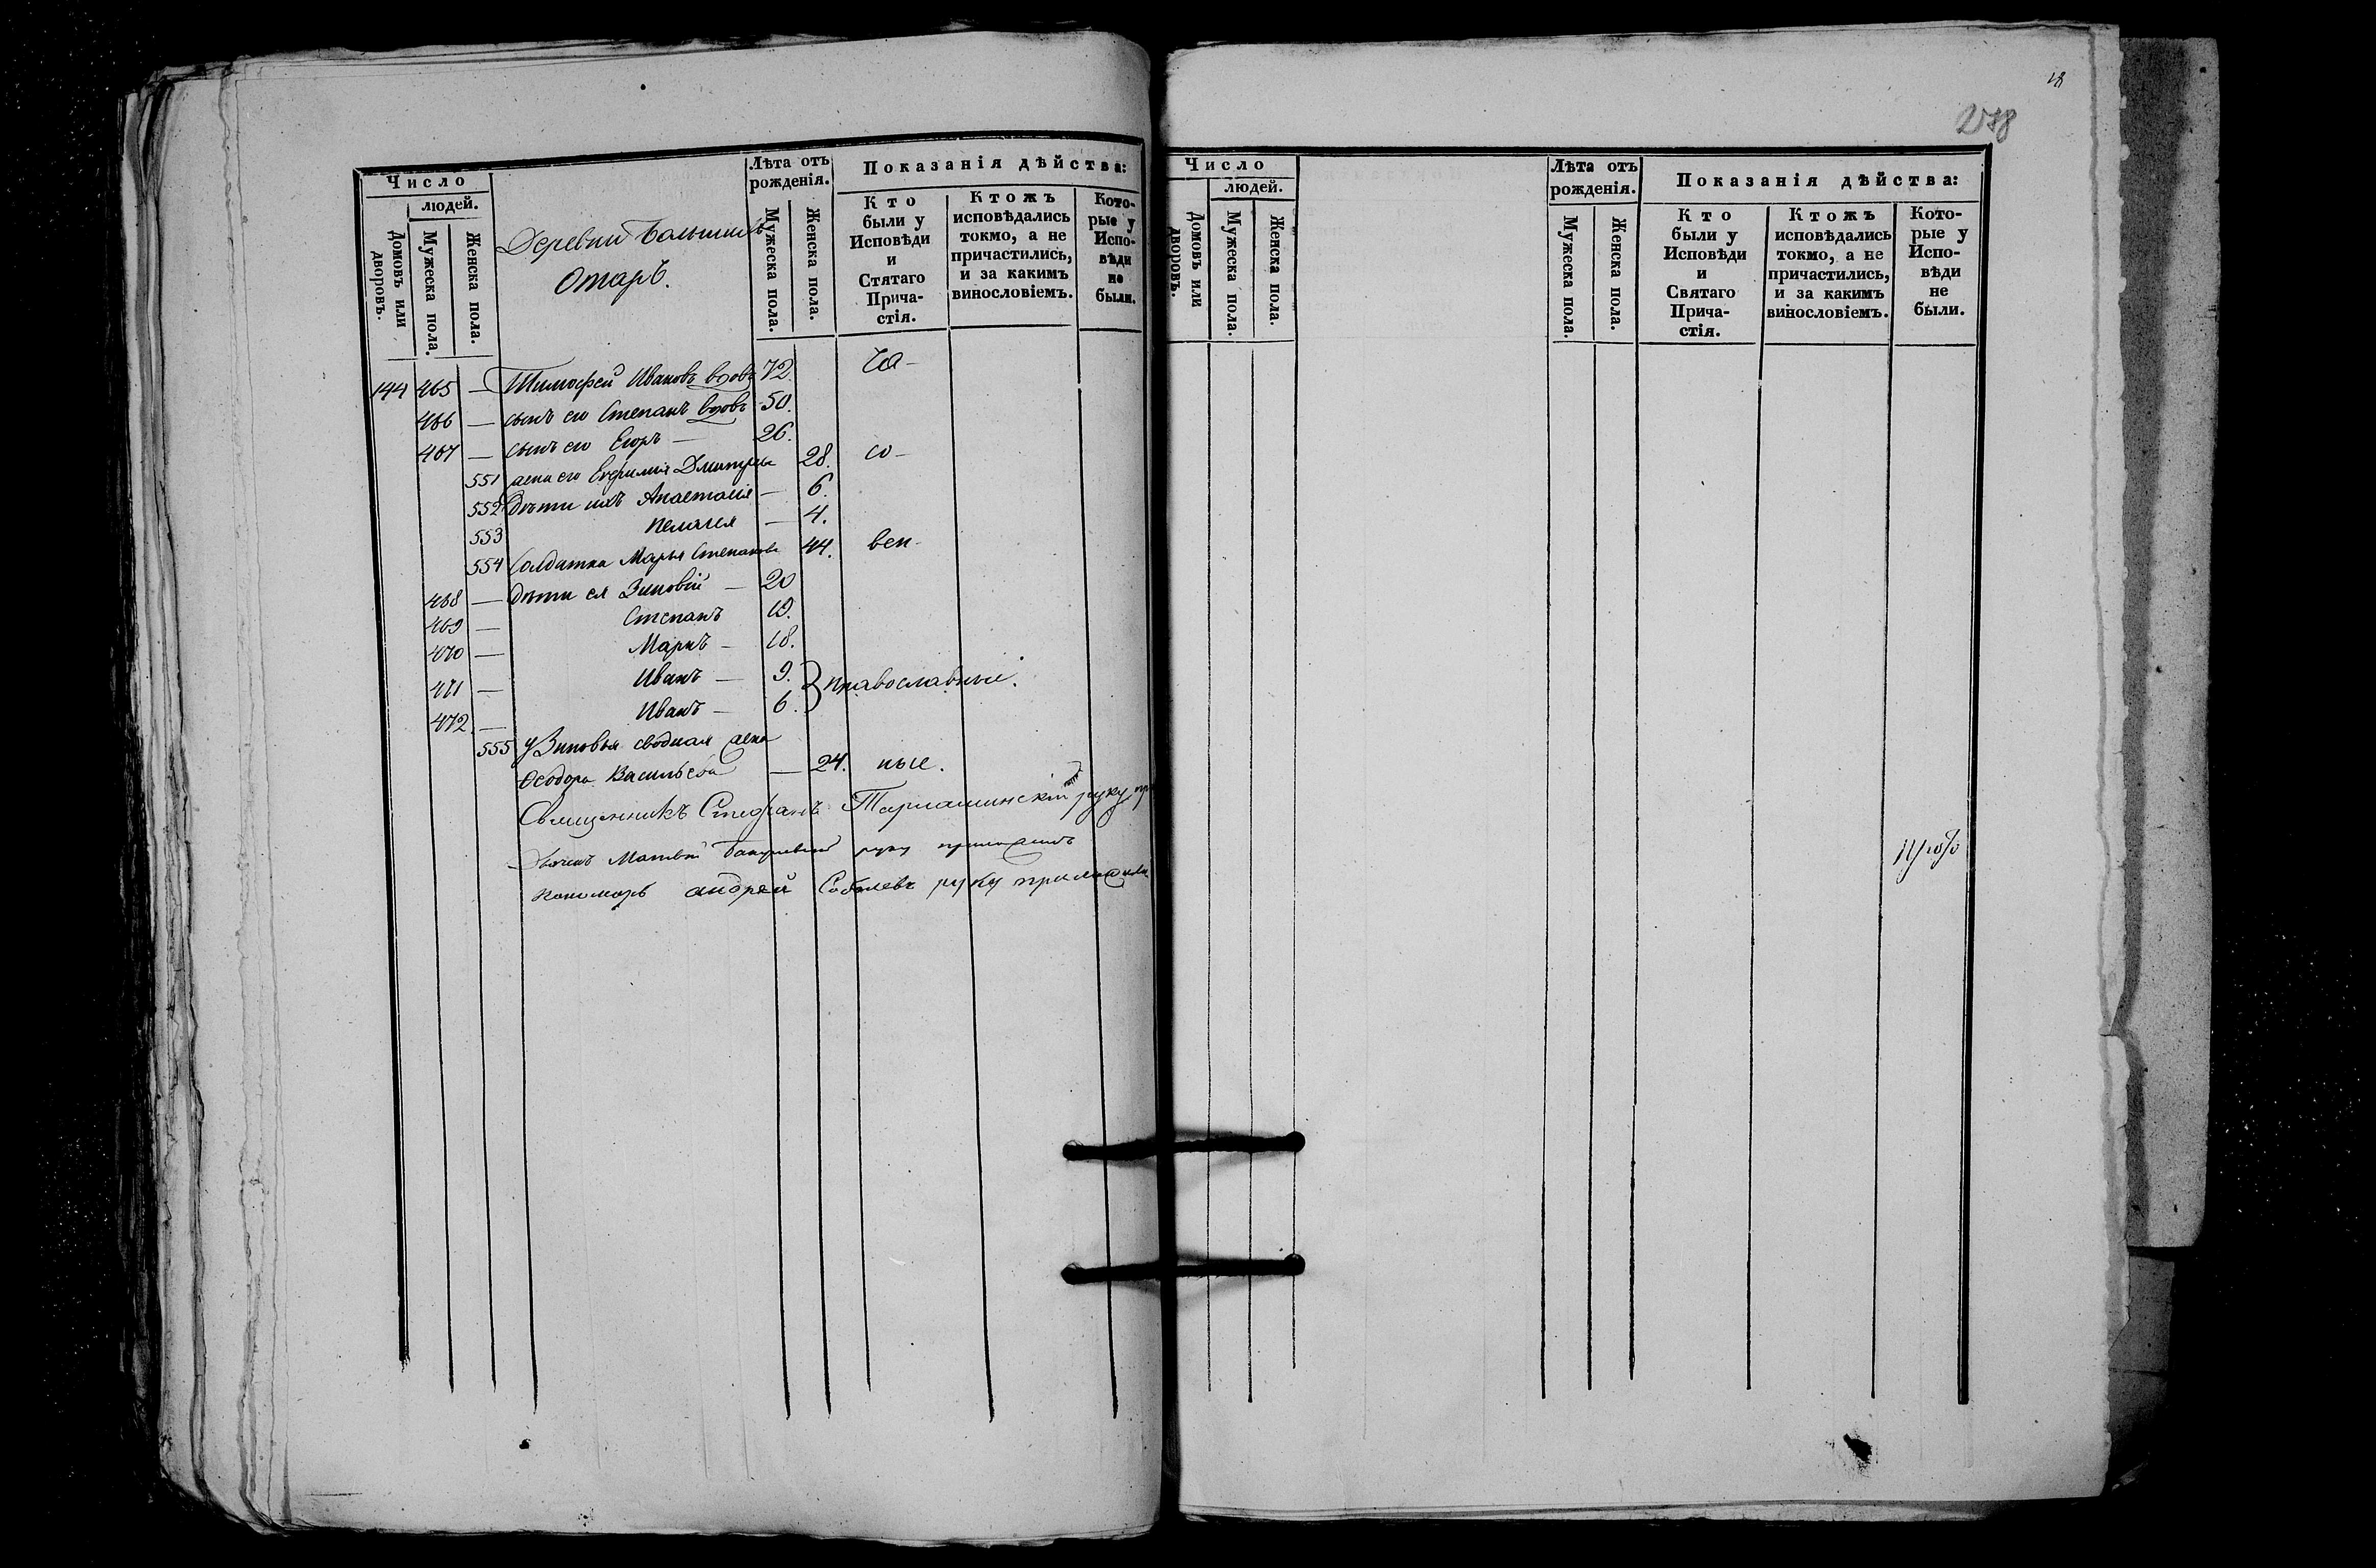 Число
людей.
Домовъ или дворовъ.
Мужеска пола.
Женска пола.
Деревни Большихъ
Отаръ.
Лѣта отъ рожденія.
Мужеска пола.
Женска пола.
Показанія дѣйства:
Кто были у Исповѣди и Стятаго Прича-стія.
Ктожъ исповѣдались токмо, а не причастились, и за какимъ винословіемъ.
Кото-рые у Испо-вѣди не были.
144 465 — Тимофей Ивановъ вдовъ 72. ра-
466 — сынъ его Степанъ вдовъ 50.
467 — сынъ его Егоръ — 26.
551 жена его Евфимія Дмитріева 28. со-
552 Дѣти ихъ Анастасія — 6.
553 Пелагея — 4.
554 Солдатка Марья Степанова 44.
468 — дѣти ея Зиновій — 20
469 — Степанъ 19.
470 — Маркъ — 18.
471 — Иванъ — 9. } православные.
472. — Иванъ — 6.
555 у Зиновья сводная жена
Ѳеодора Васильева — 24. ные.
Священникъ Стефанъ руку
Матвей руку приложилъ
Пономарь андрей Соболевъ руку приложилъ
Число
людей.
Домовъ или дворовъ.
Мужеска пола.
Женска пола.
Лѣта отъ рожденія.
Мужеска пола.
Женска пола.
Показанія дѣйства:
Кто были у Исповѣди и Святаго Прича-стія.
Ктожъ исповѣдались токмо, а не причастились, и за какимъ винословіемъ.
Кото-рые у Испо-вѣди не были.